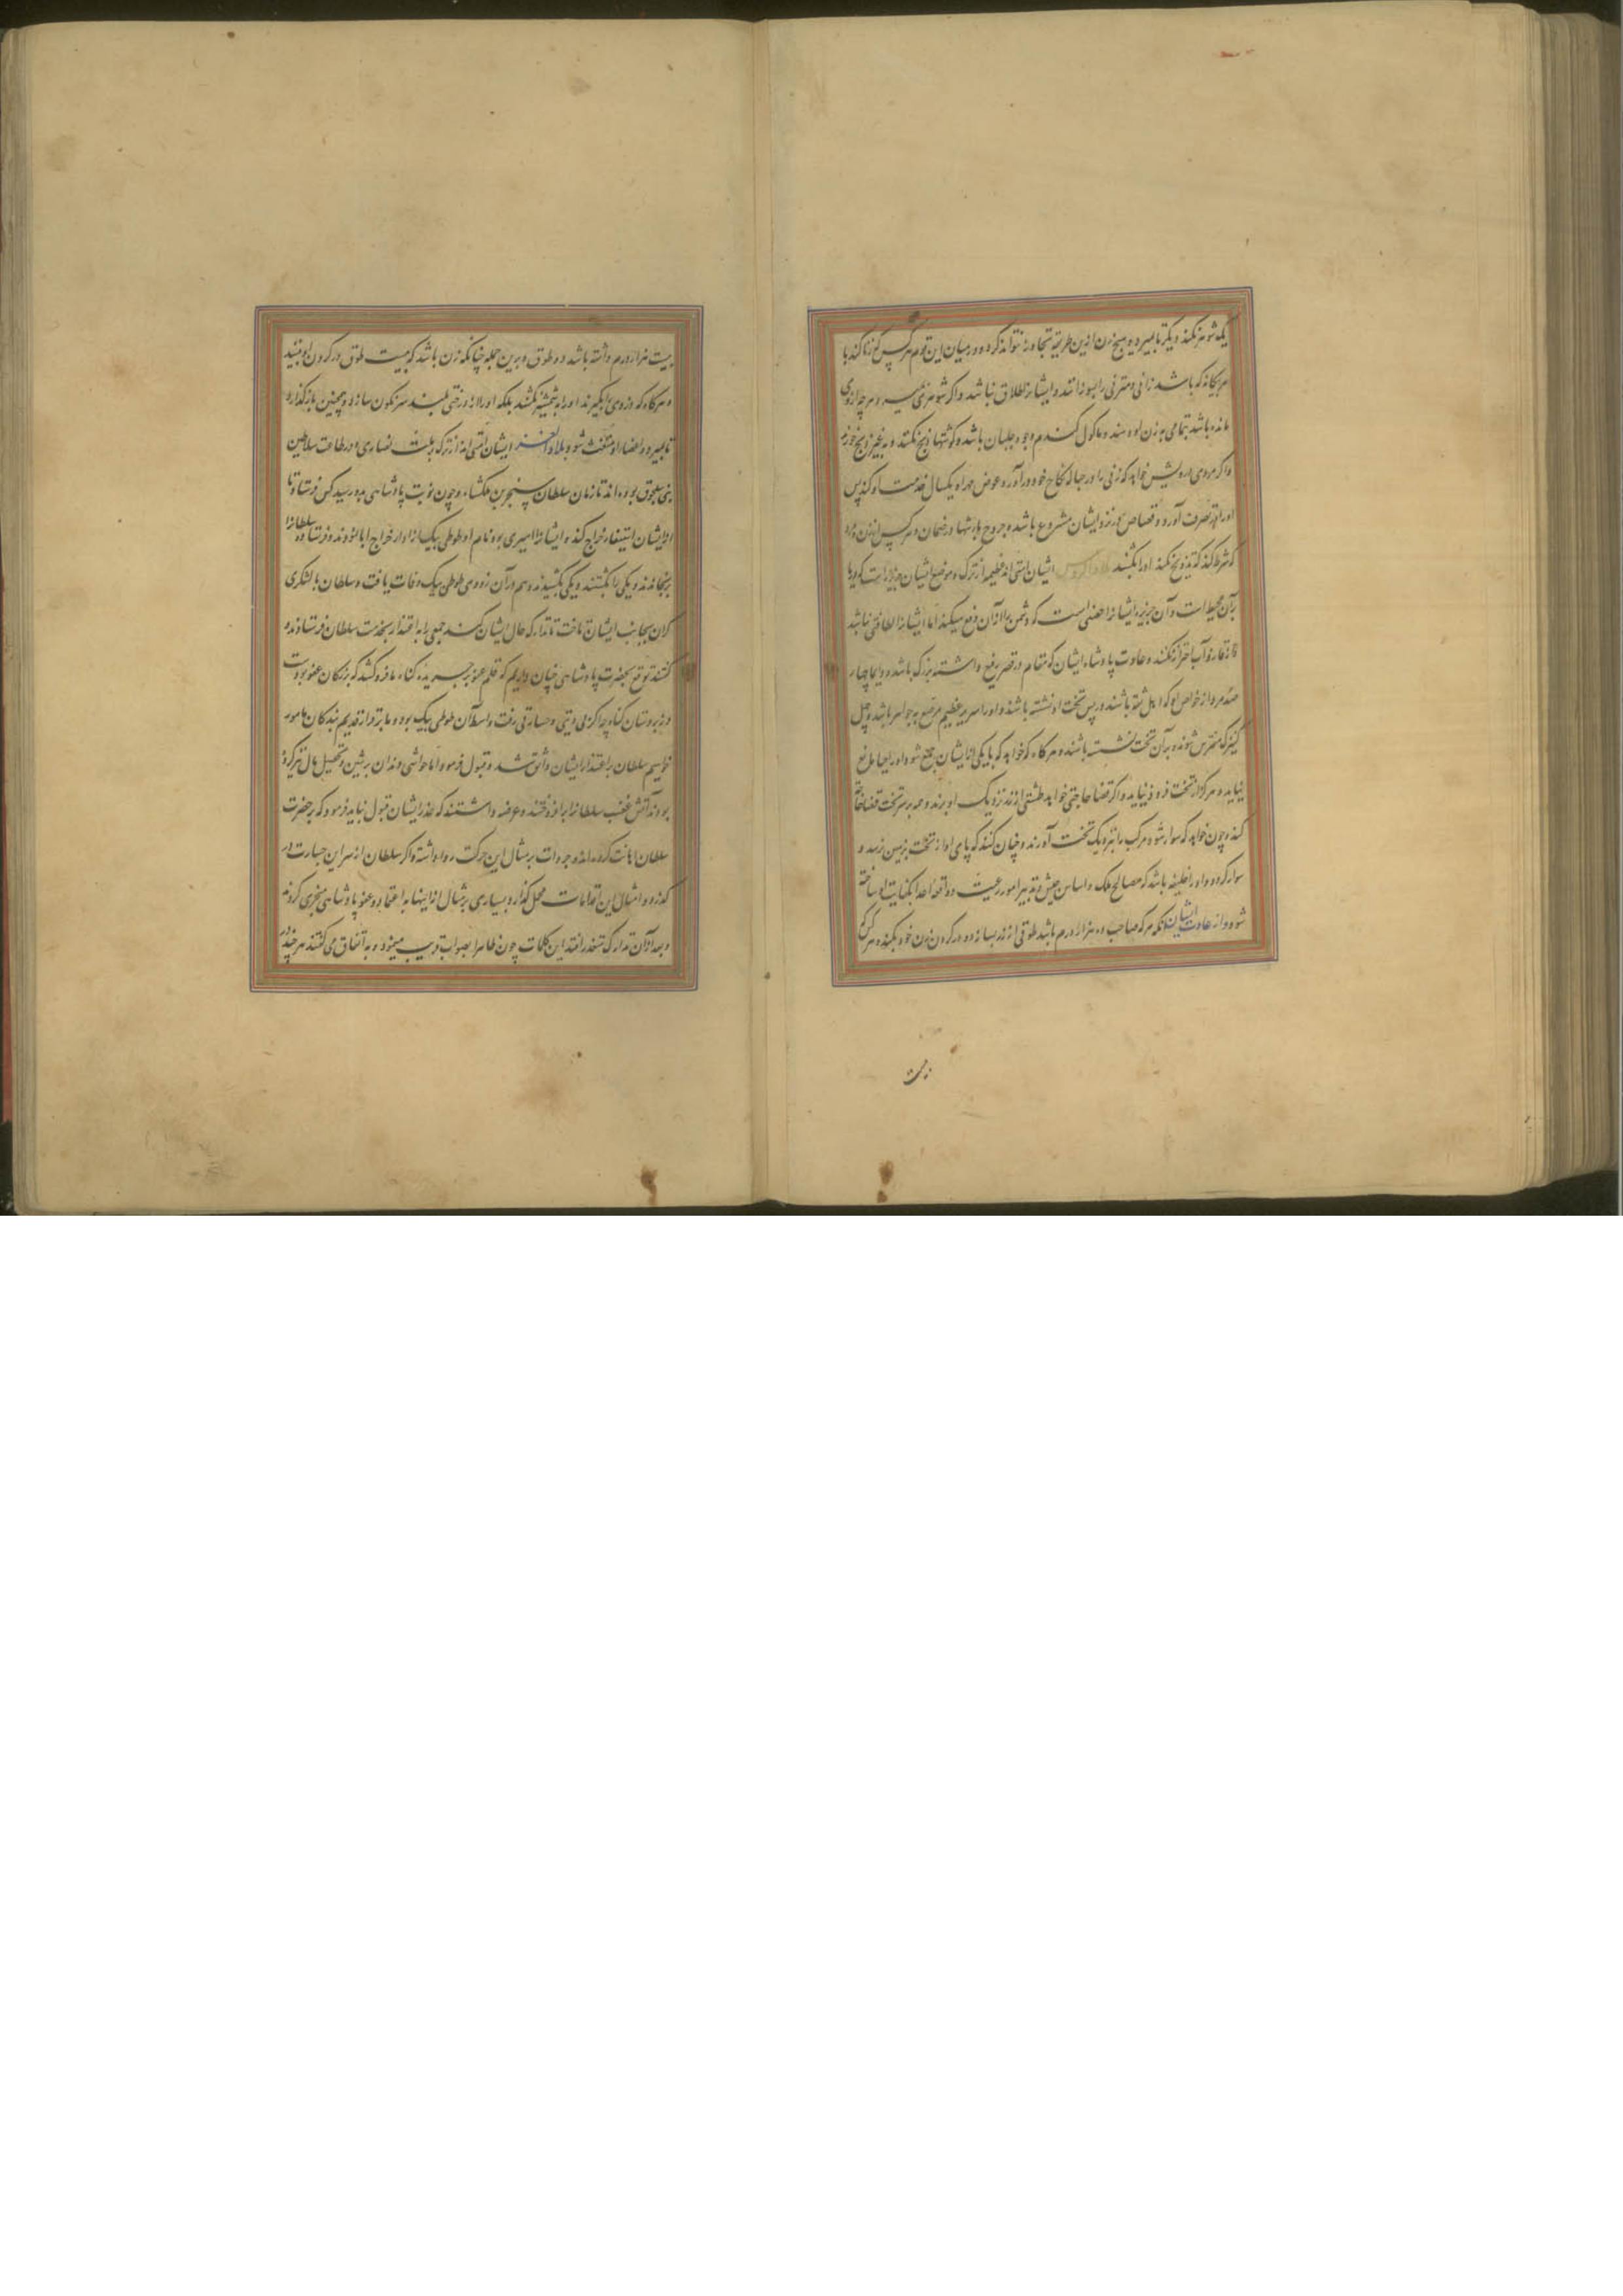 یک شوهر نکند دیگر تا بمیرد و هیچ زن ازین طریقه تجاوز نتواند کرد و در میان این قوم هر کس که زنا کند با
هر یکانه که باشد زانی و مقر نی را بسوزانند و ایشانرا طلاق نباشد و اگر شوهر بمیرد هر چه از وی
مانده باشد تمامی به زن او دهند و ماکول گندم و جو و جلبان باشد و گوشتها ذبح نکنند و به غیر ذبح خورند
و اگر مردی درویش خواهد که زنی را در حباله نکاح خود در آورد عوض مهر او یکسال خدمت او کند پس
اورا در تصرف آورد و قصاص نزد ایشان مشروع باشد و جروح را دیتها و ضمان و هر کس از زن و مرد
که شرط کند که تزویج نکند اورا بکشند بلاد الروس ایشان امتی اند عظیم از ترک و موضع ایشان جزیره است که دریا
بر آن محیط است و آن جزیره ایشانرا حصنی است که دشمن را از آن دفع میکند اما ایشانرا لطافتی نباشد
و از قاذورات احتراز نکنند و عادت پادشاه ایشان که مقام در قصر رفیع داشته بزرگ باشد و دایما چهار
صد مرد از خواص او که اهل ثقه باشند در پس تخت او نشسته باشند و اورا سریر عظیم مرصع به جواهر باشد و چهل
کنیزک مفترش شونده بر آن تخت نشسته باشند و هر گاه که خواهد که با یکی از ایشان جمع شود اورا حیا مانع
نیاید و هرگز از تخت فرود نیاید و اگر قضا حاجتی خواهد طشتی از زر نزدیک او برند و هم بر سر تخت قضا حاجت
کند و چون خواهد که سوار شود مرکب را نزدیک تخت آورند و چنان کنند که پای او از تخت بزمین نرسد و
سوار گردد و اورا خلیفه باشد که مصالح ملک و اساس جیش و تدبیر امور رعیت و واقعه اعدا بکفایت او ساخته
شود و از عادت ایشان آنکه هر که صاحب ده هزار درم باشد طوقی از زر بسازد و در گردن زن خود بکند و هر که
بیست
بیست هزار درم داشته باشد دو طوق و برین جمله چنانکه زن باشد که بیست طوق در گردن او بینند
و هر گاه که دزدی را بگیرند اورا به شمشیر نکشند بلکه اورا از درختی بلند سر نگون سازند و همچنین باز گذارند
تا بمیرد و اعضاء او متفتت شود بلاد الغز ایشان امتی اند از ترک بملت نصاری و در طاعت سلاطین
بنی سلجوق بوده اند تا زمان سلطان سنجر بن ملکشاه و چون نوبت پادشاهی بدو رسید کس فرستاد تا
از ایشان استیفاء خراج کند و ایشانرا امیری بود نام او طوطی بیک از اداء خراج ابا نمودند و فرستاده سلطانرا
برنجانیدند یکی را بکشتند و یکی بکشیدند و هم در آن زودی طوطی بیک وفات یافت و سلطان با لشکری
گران بجانب ایشان تاخت تا تدارک حال ایشان کند جمعی را به اعتذار بخدمت سلطان فرستادند و
گفتند توقع بحضرت پادشاهی چنان داریم که قلم عفو بر جریده گناه ما فرو کشد که بزرگان عفو بوده است
و زیردستان گناه چه اگر زلی و یتی و جسارتی رفت واسطه آن طوطی بیک بود و ما بندگان قدیم بندگان مامور
خواهیم سلطان بر اعتذار ایشان واثق شد و قبول فرمود اما حواشی و ندمان بر ثمین و تحصیل مال تیز کرده
بودند آتش غضب سلطانرا برافروختند و عرضه داشتند که عذر ایشان قبول نباید فرمود که بر حضرت
سلطان اهانت کرده اند و جرات بر مثال این حرکت روا داشته و اگر سلطان از سر این جسارت در
گذرد و امثال این اقدامات محل گذارد بسیاری بر مثال ازینها به اعتماد و عفو پادشاهی متجری گردند
و بعد از آن تدارک متعذر افتد این کلمات چون ظاهرا بصواب قریب مینمود و به اتفاق می گفتند هر چند